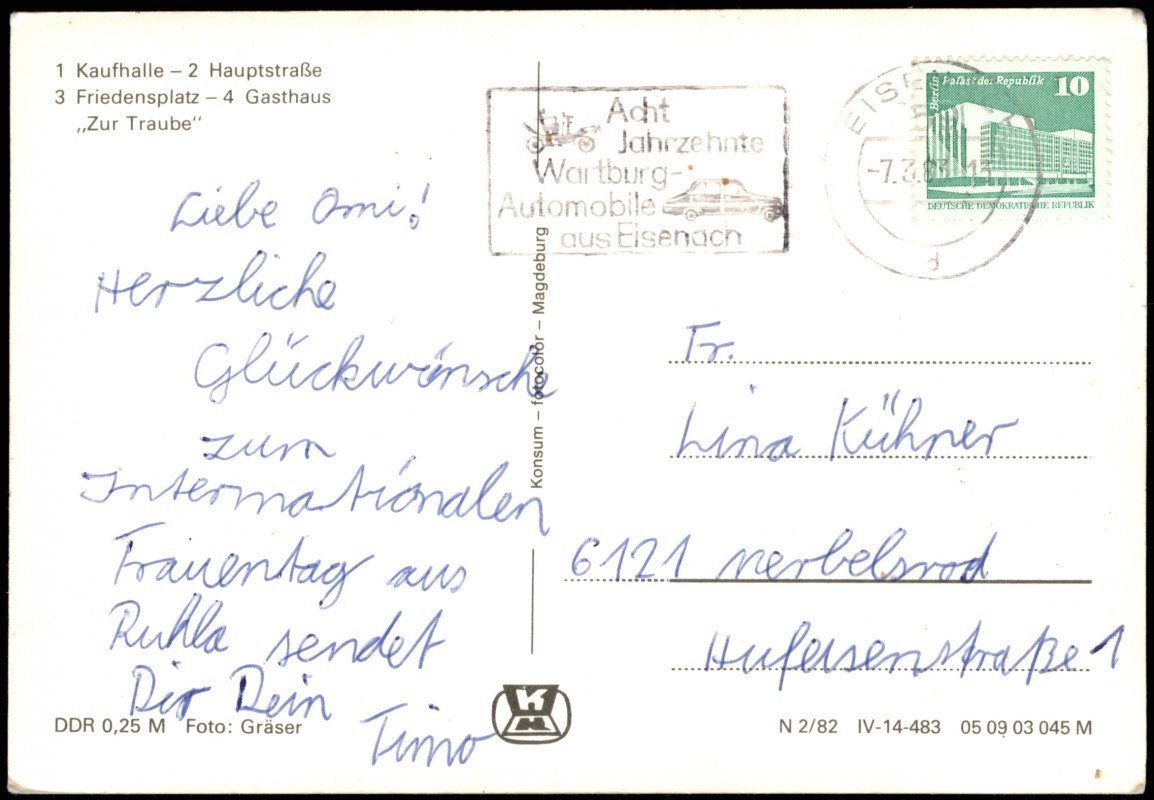 1 Kaufhalle – 2 Hauptstraße
3 Friedensplatz – 4 Gasthaus
„Zur Traube"
Acht
Jahrzehnte
Wartburg-
Automobile
aus Eisenach
Berlin Palast der Republik
10
DEUTSCHE DEMOKRATISCHE REPUBLIK
-7.3.83
d
Liebe Omi!
Herzliche
Glückwünsche
zum
Internationalen
Frauentag aus
Ruhla sendet
Dir Dein
Timo
Konsum – fotocolor – Magdeburg
Fr.
Lina Kühner
6121 Merbelsrod
Hufeisenstraße 1
DDR 0,25 M Foto: Gräser
N 2/82 IV-14-483 05 09 03 045 M